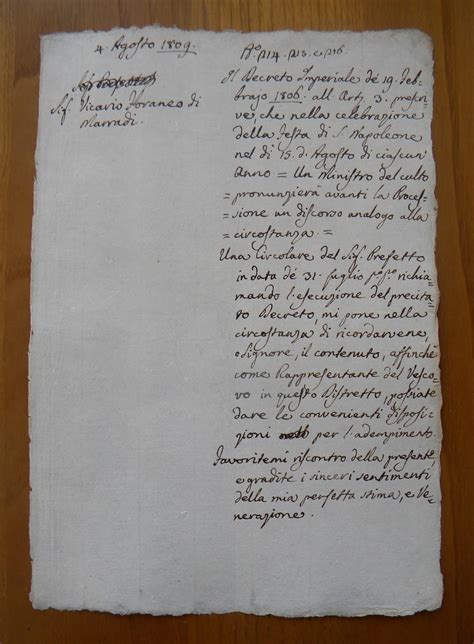 4. Agosto 1809.
Sig.r Vicario Foraneo di
Marradi.
N.° 214. 215. e 216.
Il Decreto Imperiale de 19. Feb-
brajo 1806. all' Art. 3. prescri-
ve, che nella celebrazione
della Festa di S. Napoleone
nel dì 15. d'Agosto di ciascun'
Anno = Un Ministro del culto
= pronunzierà avanti la Proces-
= sione un discorso analogo alla
= circostanza. =
Una Circolare del Sig. Prefetto
in data de' 31. Luglio p.° p.° richia-
mando l'esecuzione del precita-
to Decreto, mi pone nella
circostanza di ricordarvene
o Signore, il contenuto, affinchè
come Rappresentante del Vesco-
vo in questo Distretto, possiate
dare le convenienti disposi-
zioni per l'adempimento.
Favoritemi riscontro della presente,
e gradite i sinceri sentimenti
della mia perfetta stima, e Ve-
nerazione.